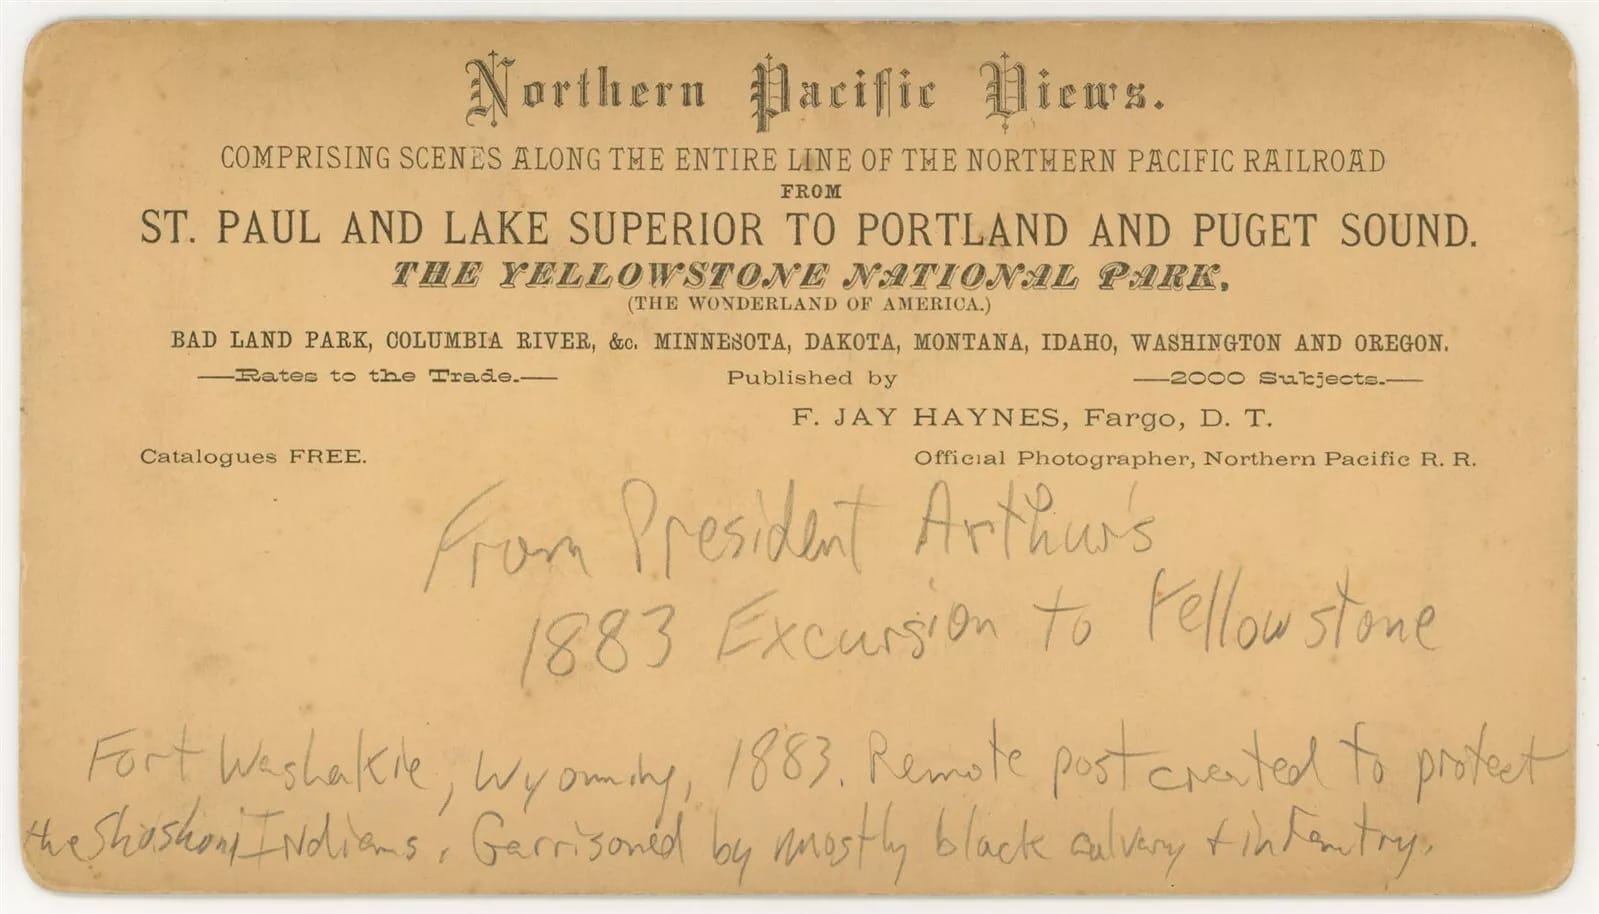 Northern Pacific Views.
COMPRISING SCENES ALONG THE ENTIRE LINE OF THE NORTHERN PACIFIC RAILROAD
FROM
ST. PAUL AND LAKE SUPERIOR TO PORTLAND AND PUGET SOUND.
THE YELLOWSTONE NATIONAL PARK,
(THE WONDERLAND OF AMERICA.)
BAD LAND PARK, COLUMBIA RIVER, &c. MINNESOTA, DAKOTA, MONTANA, IDAHO, WASHINGTON AND OREGON.
—Rates to the Trade.— Published by —2000 Subjects.—
F. JAY HAYNES, Fargo, D. T.
Catalogues FREE. Official Photographer, Northern Pacific R. R.
From President Arthur's
1883 Excursion to Yellowstone
Fort Washakie, Wyoming, 1883. Remote post created to protect
the Shoshoni Indians. Garrisoned by mostly black calvary + infantry.